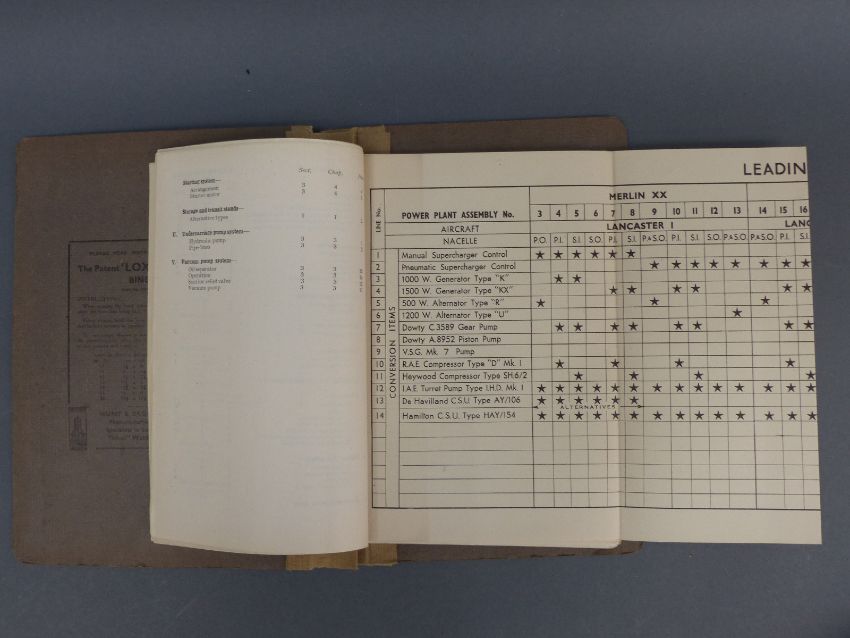 The Patent "LOX
BIN
Sect. Chap.
Starting system—
Arrangement 3 4
Starter motor 3 4
Storage and transit stands—
Alternative types 1 1
U. Undercarriage pump system—
Hydraulic pump 3 3
Pipe-lines 3 3
V. Vacuum pump system—
Oil separator 3 3
Operation 3 3
Suction relief valve 3 3
Vacuum pump 3 3
LEADIN
LINE No.
POWER PLANT ASSEMBLY No.
AIRCRAFT
NACELLE
MERLIN XX
3 4 5 6 7 8 9 10 11 12 13 14 15 16
LANCASTER I LANC
P.O. P.I. S.I. S.O. P.I. S.I. P.&S.O. P.I. S.I. S.O. P.&S.O. P.&S.O. P.I. S.I.
CONVERSION ITEMS
1 Manual Supercharger Control ★ ★ ★ ★ ★ ★
2 Pneumatic Supercharger Control ★ ★ ★ ★ ★ ★ ★ ★
3 1000 W. Generator Type "K" ★ ★
4 1500 W. Generator Type "KX" ★ ★ ★ ★ ★ ★
5 500 W. Alternator Type "R" ★ ★ ★
6 1200 W. Alternator Type "U" ★
7 Dowty C.3589 Gear Pump ★ ★ ★ ★ ★ ★ ★ ★
8 Dowty A.8952 Piston Pump
9 V.S.G. Mk. 7 Pump
10 R.A.E. Compressor Type "D" Mk. I ★ ★ ★ ★
11 Heywood Compressor Type SH.6/2 ★ ★ ★ ★
12 I.A.E. Turret Pump Type I.H.D. Mk. I ★ ★ ★ ★ ★ ★ ★ ★ ★ ★ ★ ★ ★ ★
13 De Havilland C.S.U. Type AY/106 ★ ★ ★ ★ ★ ★
ALTERNATIVES
14 Hamilton C.S.U. Type HAY/154 ★ ★ ★ ★ ★ ★ ★ ★ ★ ★ ★ ★ ★ ★